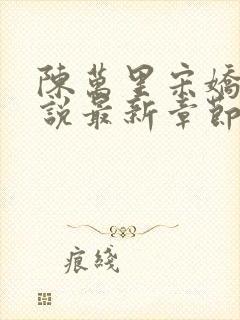 陳萬里宋嬌
說最新章節
痕綫